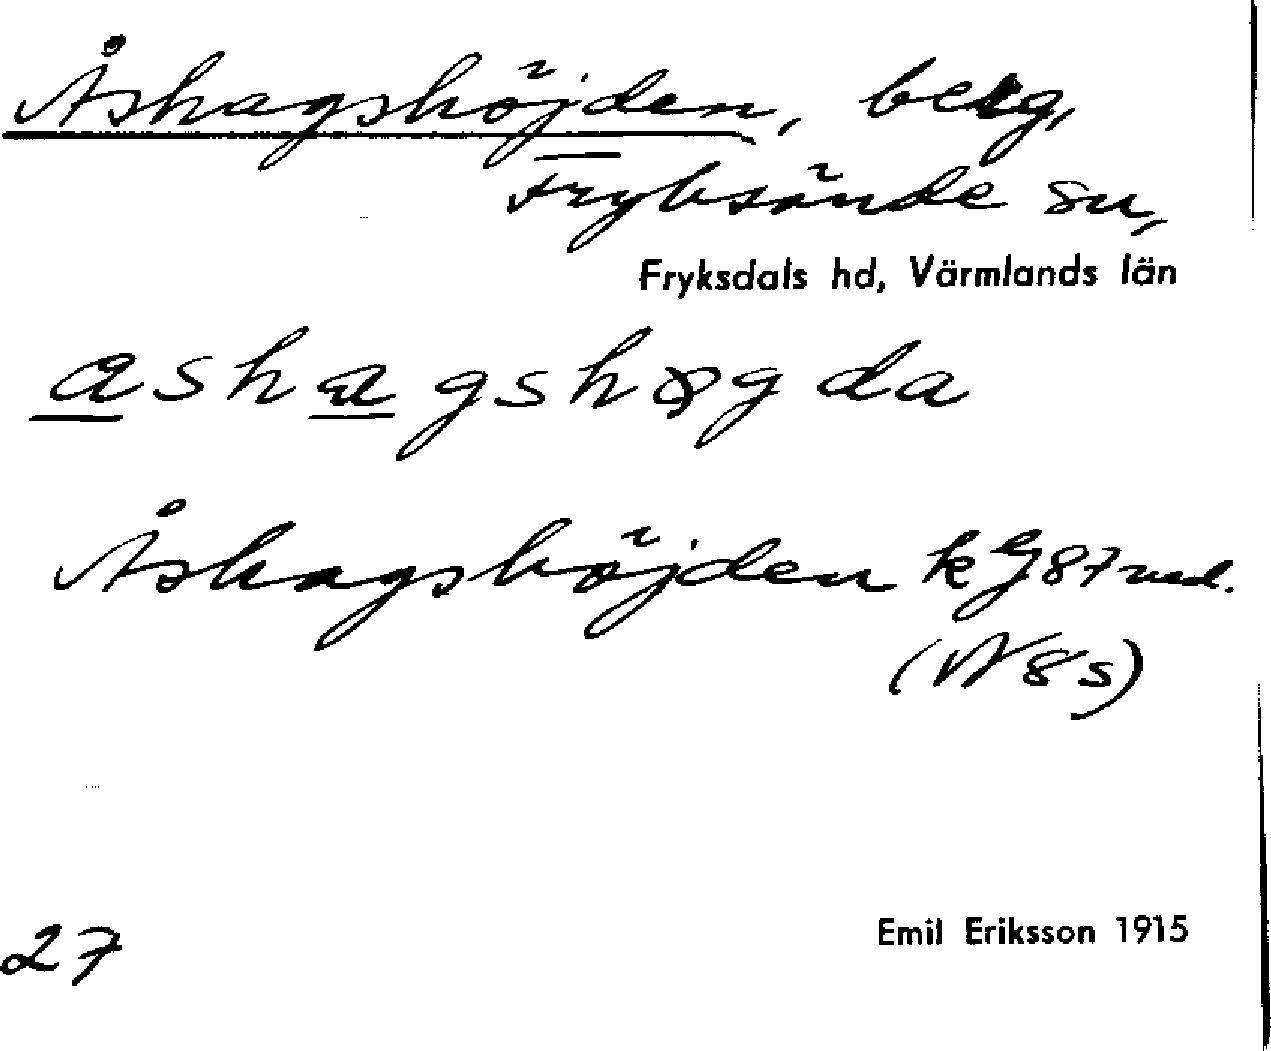 Åshagshöjden, berg,
Fryksände sn,
Fryksdals hd, Värmlands län
ashagshøgda
Åshagshöjden k G87 ned.
(N 8 s)
Emil Eriksson 1915
27